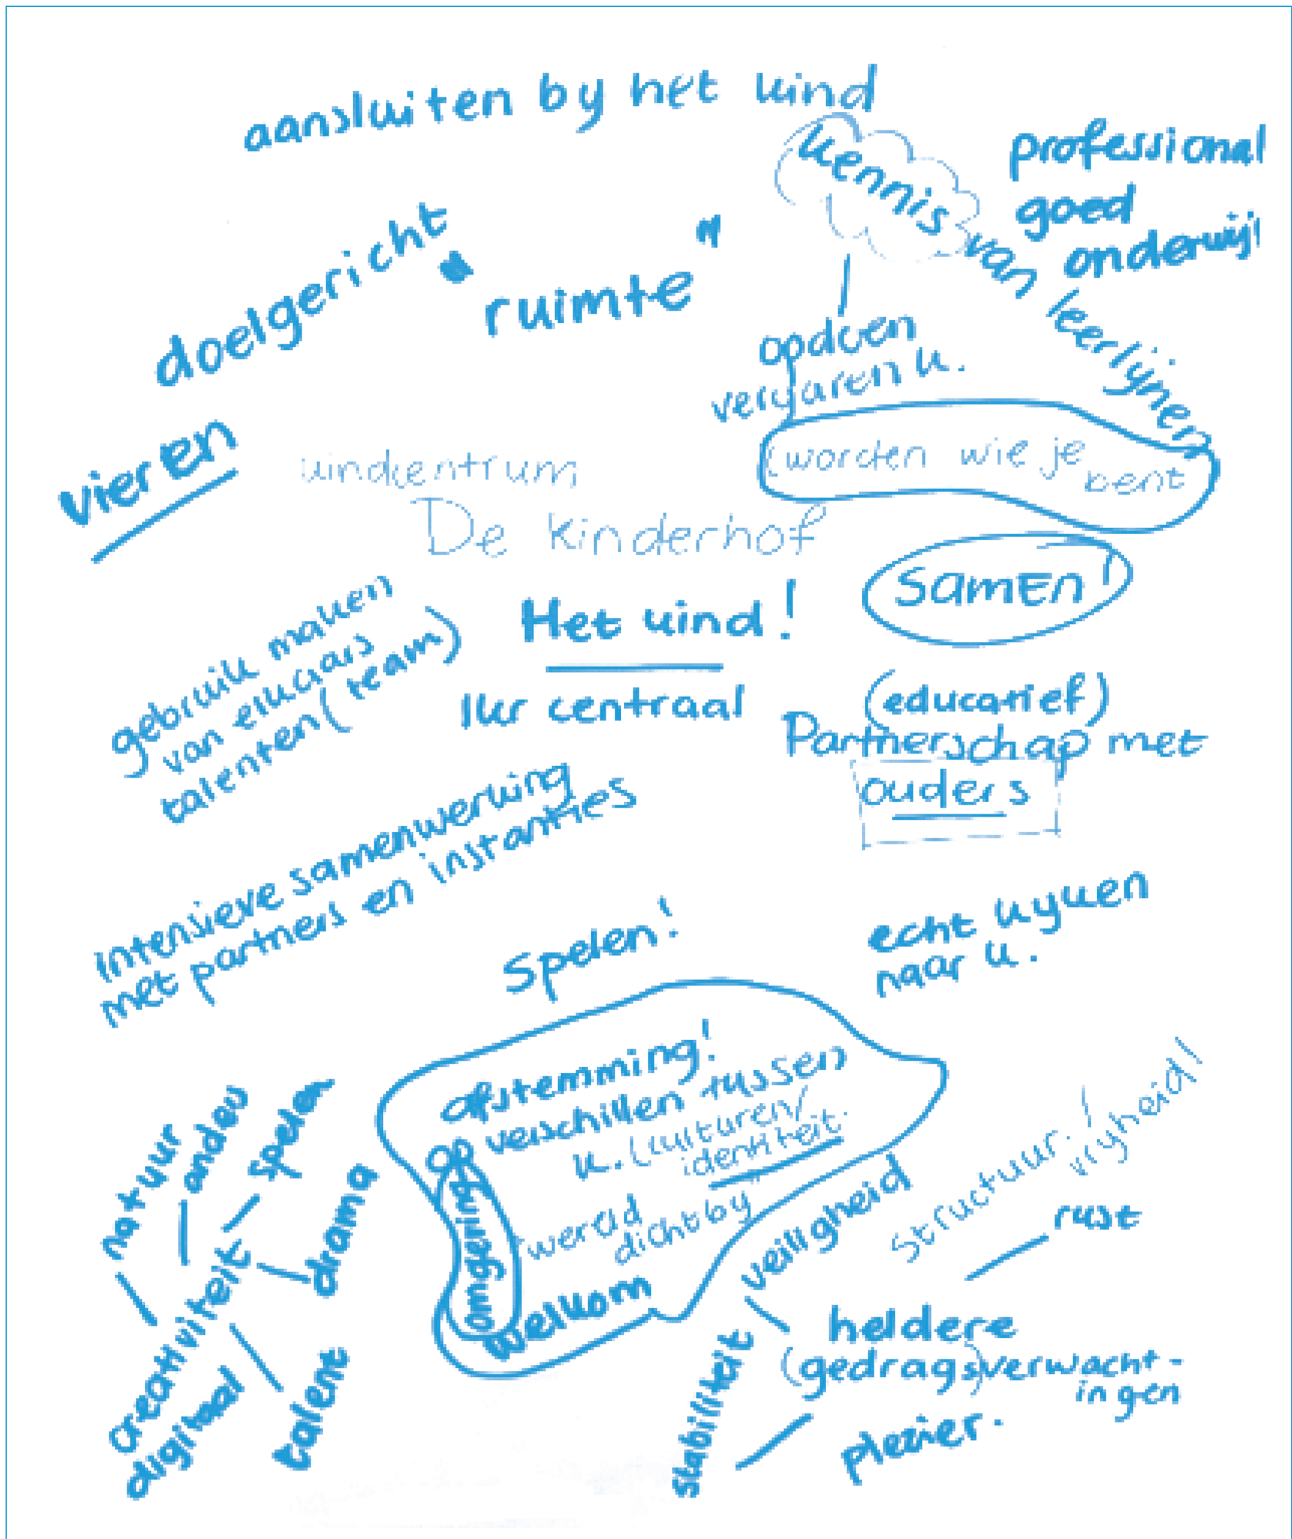 aansluiten bij het kind
kennis van leerlijnen
professional
goed
onderwijs
doelgericht
"ruimte"
opdoen
vergaren k.
vieren
(worden wie je
bent
kindcentrum
De Kinderhof
samen!
Het kind!
lkr centraal
gebruik maken
van elkaars
talenten (team)
(educatief)
Partnerschap met
ouders
intensieve samenwerking
met partners en instanties
Spelen!
echt kijken
naar k.
afstemming!
op verschillen tussen
k. (culturen/
identiteit.
omgering
"wereld
dichtbij"
welkom
natuur
anders
spelen
drama
creativiteit
digitaal
talent
veiligheid
structuur. / vrijheid!
rust
stabiliteit
heldere
(gedrags)verwacht-
ingen
plezier.